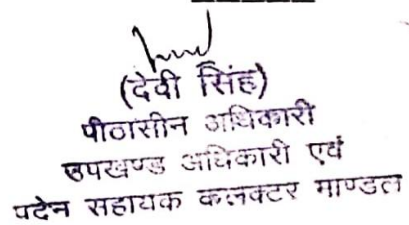 (देवी सिंह)
पीठासीन अधिकारी
उपखण्ड अधिकारी एवं
पदेन सहायक कलक्टर माण्डल